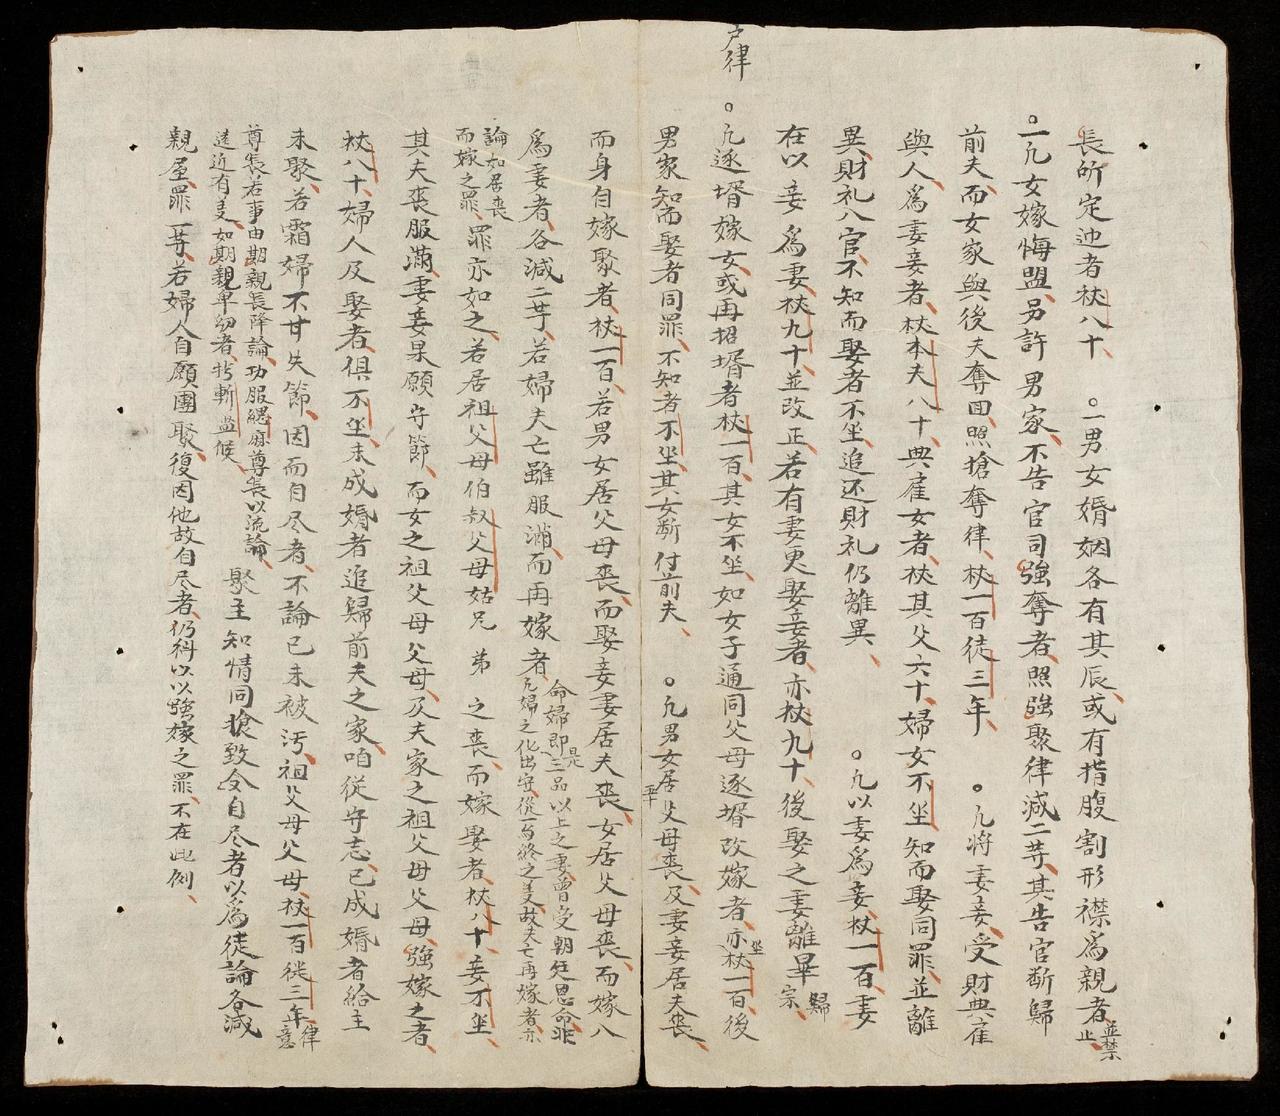 户律
長所定迯者杖八十、○一男女婚姻各有其辰、或有指腹割形襟為親者、並禁止、
○一凡女嫁悔盟、另許男家、不告官司強奪者、照強聚律減二等、其告官断歸
前夫、而女家與後夫奪回、照搶奪律、杖一百徒三年、○凡将妻妾、受財典雇
與人、為妻妾者、杖本夫八十、典雇女者、杖其父六十、婦女不坐、知而娶同罪、並離
異、財礼入官、不知而娶者不坐、追还財礼仍離異、○凡以妻為妾、杖一百、妻
在以妾為妻、杖九十、並改正若有妻更娶妾者、亦杖九十、後娶之妻離異歸宗、
○凡逐壻嫁女、或再招壻者、杖一百、其女不坐、如女子通同父母逐壻改嫁者、亦坐杖一百、後
男家知而娶者同罪、不知者不坐、其女断付前夫、○凡男女居父母喪、及妻妾居夫喪、
而身自嫁聚者、杖一百、若男女居父母喪、而娶妾妻居夫喪、女居父母喪、而嫁人
為妻者、各減二等、若婦夫亡雖服滿而再嫁者、命婦即是三品以上之妻、曾受朝廷恩命、非凡婦之化出守、從一為終之美、故夫亡再嫁者、亦
論如居喪而嫁之罪、罪亦如之、若居祖父母伯叔父母姑兄弟之喪、而嫁娶者、杖八十、妾不坐、
其夫喪服滿、妻妾果願守節、而女之祖父母父母、及夫家之祖父母父母、強嫁之者、
杖八十、婦人及娶者、俱不坐、未成婚者追歸前夫之家、咱從守志、已成婚者給主
未聚、若霜婦不甘失節、因而自尽者、不論已未被污、祖父母父母、杖一百徒三年、律意
尊長若事由期親長降論、功服緦麻尊長以流論、
遠近有美、如期親卑幼者、拷斬監候
聚主知情同搶致令自尽者以為徒論各減
親屋罪一等、若婦人自願團聚、復因他故自尽者、仍科以以強嫁之罪、不在此例、